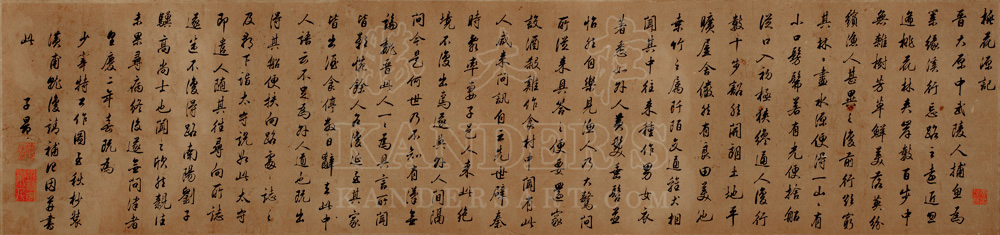 桃花源記
晉太原中武陵人捕魚為
業緣溪行忘路之遠近忽
逢桃花林夾岸數百步中
無雜樹芳草鮮美落英紛
繽漁人甚異之復前行欲窮
其林林盡水源便得一山山有
小口髣髴若有光便捨船
從口入初極狹纔通人復行
數十步豁然開朗土地平
曠屋舍儼然有良田美池
桑竹之屬阡陌交通雞犬相
聞其中往來種作男女衣
著悉如外人黃髮垂髫並
怡然自樂見漁人乃大驚問
所從來具答之便要還家
設酒殺雞作食村中聞有此
人咸來問訊自云先世避秦
時亂率妻子邑人來此絕
境不復出焉遂與外人間隔
問今是何世乃不知有漢無
論魏晉此人一一為具言所聞
皆歎惋餘人各復延至其家
皆出酒食停數日辭去此中
人語云不足為外人道也既出
得其船便扶向路處處誌之
及郡下詣太守說如此太守
即遣人隨其往尋向所誌
遂迷不復得路南陽劉子
驥高尚士也聞之欣然親往
未果尋病終後遂無問津者
皇慶二年春既為
少華特工作圖至秋杪裝
潢甫就復請補此因再書
此
子昂
KANDERS